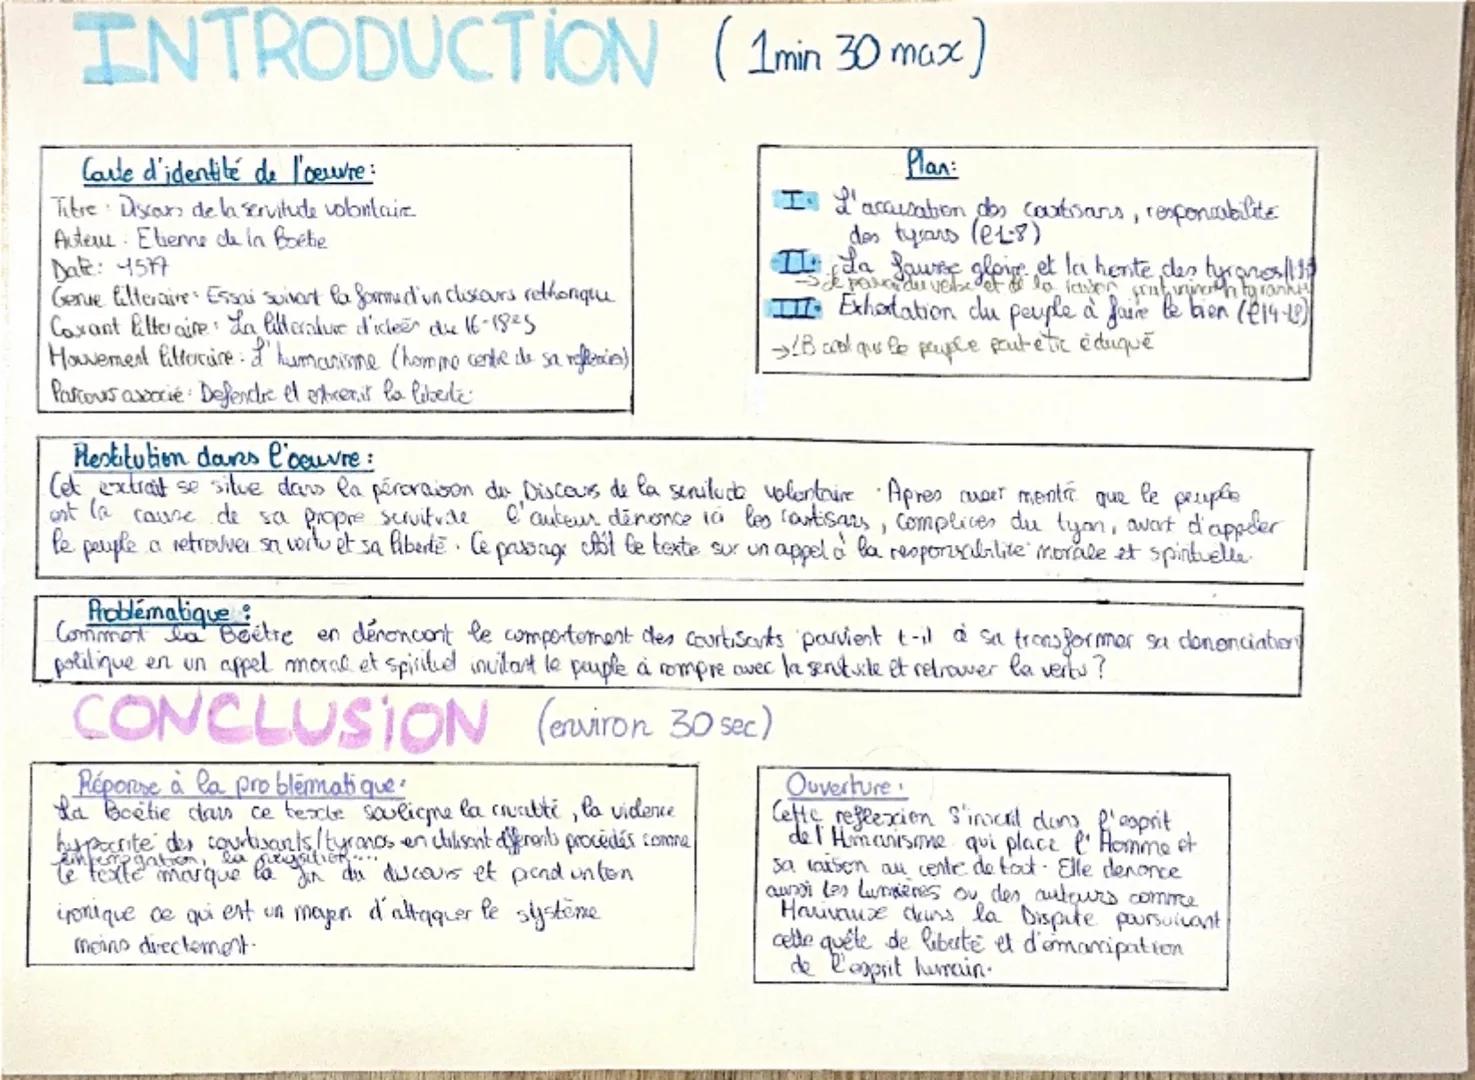 INTRODUCTION (1min 30 max)
Carte d'identité de l'oeuvre:
Titre: Discours de la servitude volontaire
Auteur: Etienne de la Boétie
Date: 1577
Genre littéraire: Essai suivant la forme d'un discours rethorique
Courant littéraire: La littérature d'idées du 16-18es
Mouvement littéraire: L'humanisme (homme centre de sa reflexion)
Parcours associé: Defendre et la liberté
Plan:
I. L'accusation des courtisans, responsabilité
des tyrans (l1-8)
II. La fausse gloire et la honte des tyrans
→ de la raison
III. Exhortation du peuple à faire le bien (l14-18)
→ LB croit que le peuple peut etre éduqué
Restitution dans l'oeuvre:
Cet extrait se situe dans la péroraison du Discours de la servitude volontaire. Apres avoir montré que le peuple
est la cause de sa propre servitude l'auteur dénonce ici les courtisans, complices du tyran, avant d'appeler
le peuple a retrouver sa vertu et sa liberté. Ce passage clôt le texte sur un appel à la responsabilité morale et spirituelle.
Problématique:
Comment La Boétie en dénoncant le comportement des courtisants parvient t-il à sa transformer sa dénonciation
politique en un appel moral et spirituel invitant le peuple à rompre avec la servitude et retrouver la vertu?
CONCLUSION (environ 30 sec)
Réponse à la problématique:
La Boétie dans ce texte souligne la cruauté, la violence
hypocrite des courtisants/tyrans en utilisant différents procédés comme
interrogation, la ...
le texte marque la fin du discours et prend un ton
ironique ce qui est un moyen d'attaquer le système
moins directement.
Ouverture:
Cette reflexion s'inscrit dans l'esprit
de l'Humanisme qui place l'Homme et
sa raison au centre de tout. Elle dénonce
aussi les Lumières ou des auteurs comme
Marivaux dans la Dispute poursuivant
cette quête de liberté et d'émancipation
de l'esprit humain.